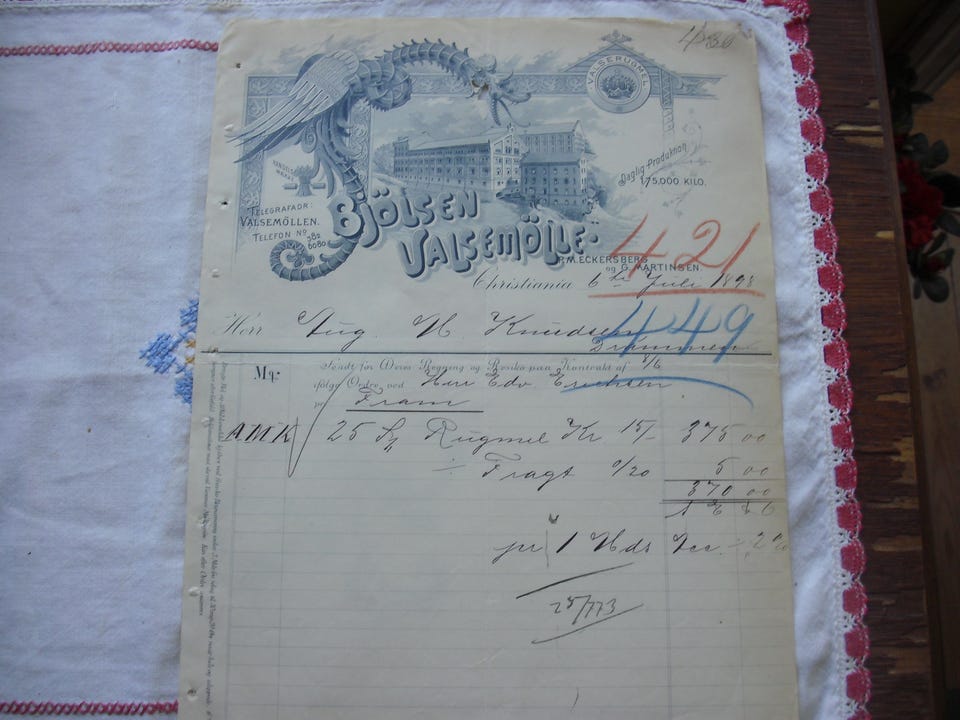 VALSERUGMEL.
HANDELS
MÆRKE
Daglig Produktion
175,000 KILO.
TELEGRAFADR:
VALSEMÖLLEN.
TELEFON No 382
6080
BJÖLSEN
VALSEMÖLLE.
P.M. ECKERSBERG
OG G. MARTINSEN.
421
Christiania 6te Juli 1898
449
Herr Aug H Knudsen
Drammen
Mq: Sendt for Deres Regning og Resiko paa Kontrakt af 8/6
ifølge Ordre ved Herr Edv Erichsen
pr Fram
AMK 25 Sk Rugmel Kr 15/- 375 00
÷ Fragt 0/20 5 00
370 00
25/773